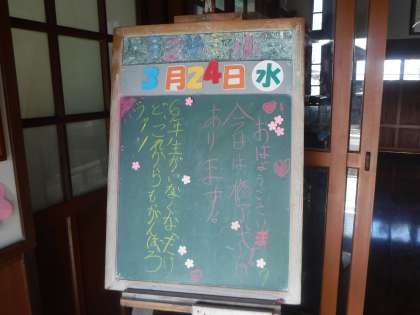 3月24日 水
おはようございます
今日は修了式が
あります。
6年生がいなくなったけ
ど、これからもがんばろ
う!!